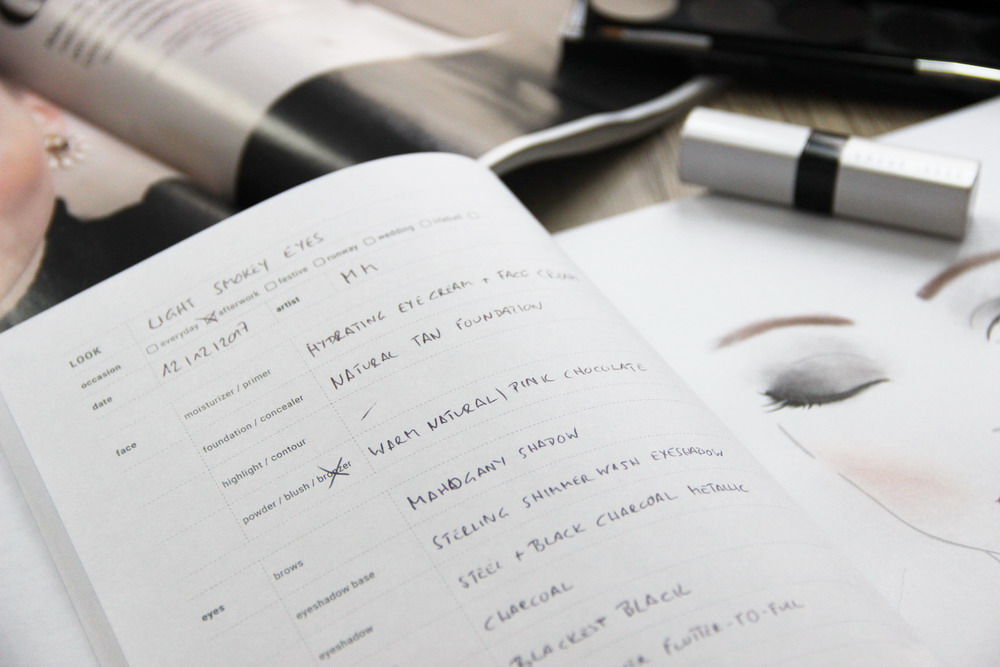 LOOK LIGHT SMOKEY EYES
occasion everyday afterwork festive runway wedding
date 12/12/2017 artist MM
face moisturizer / primer HYDRATING EYE CREAM + FACE CREAM
foundation / concealer NATURAL TAN FOUNDATION
highlight / contour /
powder / blush / bronzer WARM NATURAL / PINK CHOCOLATE
brows MAHOGANY SHADOW
eyes eyeshadow base STERLING SHIMMER WASH EYESHADOW
eyeshadow STEEL + BLACK CHARCOAL METALLIC
CHARCOAL
BLACKEST BLACK
FLUTTER-TO-FULL